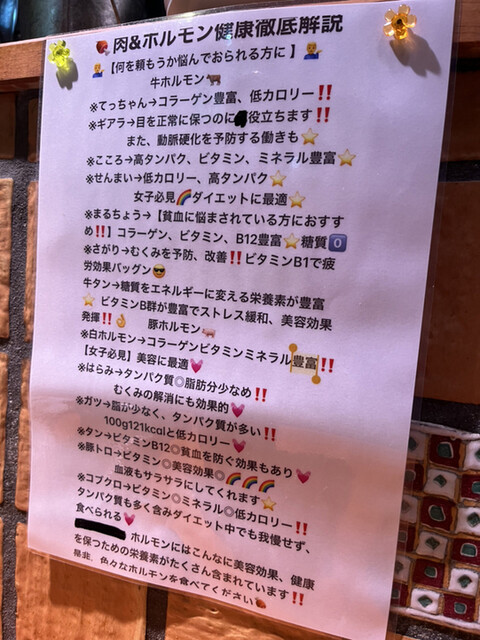 🍖肉&ホルモン健康徹底解説
💁‍♂️【何を頼もうか悩んでおられる方に】💁‍♂️
牛ホルモン🐂
※てっちゃん→コラーゲン豊富、低カロリー‼️
※ギアラ→目を正常に保つのに役立ちます‼️
また、動脈硬化を予防する働きも⭐️
※こころ→高タンパク、ビタミン、ミネラル豊富⭐️
※せんまい→低カロリー、高タンパク⭐️
女子必見🌈ダイエットに最適⭐️
※まるちょう→【貧血に悩まされている方におすす
め‼️】コラーゲン、ビタミン、B12豊富⭐️糖質0️⃣
※さがり→むくみを予防、改善‼️ビタミンB1で疲
労効果バッグン😎
牛タン→糖質をエネルギーに変える栄養素が豊富
⭐️ ビタミンB群が豊富でストレス緩和、美容効果
発揮‼️👌 豚ホルモン🐖
※白ホルモン→コラーゲンビタミンミネラル豊富‼️
【女子必見】美容に最適💓
※はらみ→タンパク質◎脂肪分少なめ‼️
むくみの解消にも効果的💓
※ガツ→脂が少なく、タンパク質が多い‼️
100g121kcalと低カロリー💓
※タン→ビタミンB12◎貧血を防ぐ効果もあり💓
※豚トロ→ビタミン◎美容効果◎🌈🌈🌈
血液もサラサラにしてくれます⭐️
※コブクロ→ビタミン◎ミネラル◎低カロリー‼️
タンパク質も多く含みダイエット中でも我慢せず、
食べられる💓
ホルモンにはこんなに美容効果、健康
を保つための栄養素がたくさん含まれています‼️
是非、色々なホルモンを食べてください🍖